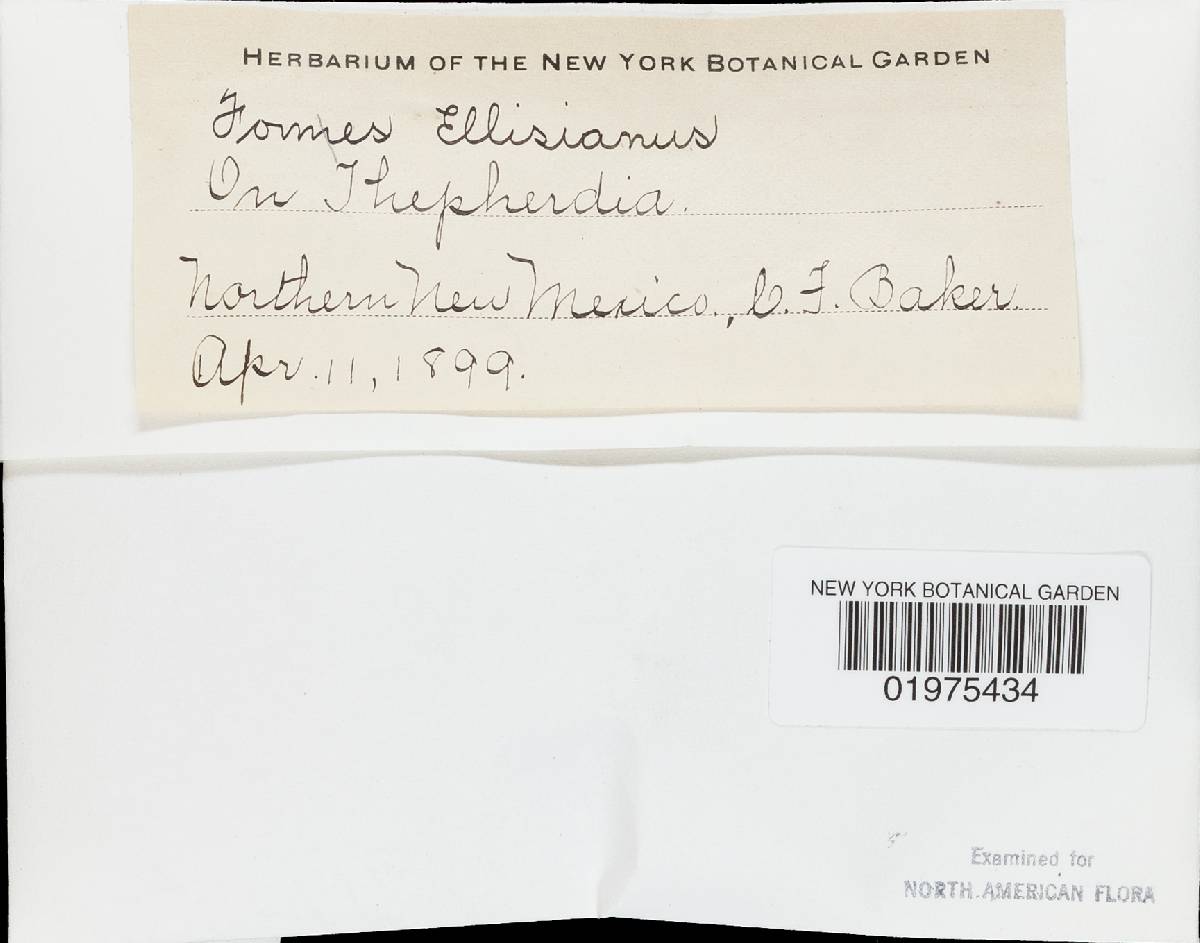 HERBARIUM OF THE NEW YORK BOTANICAL GARDEN
Fomes Ellisianus
On Shepherdia.
Northern New Mexico., C. F. Baker.
Apr. 11, 1899.
NEW YORK BOTANICAL GARDEN
01975434
Examined for
NORTH AMERICAN FLORA